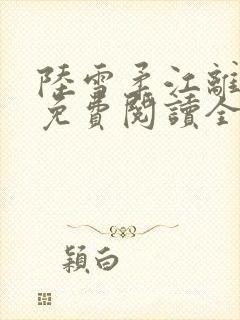 陸雪柔江離
免費閱讀全
穎白